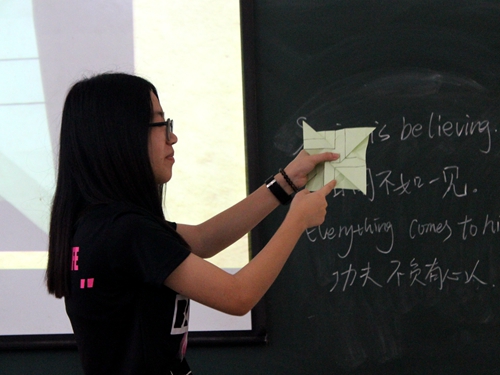 is believing
不如一见.
Everything comes to
功夫不负有心人.